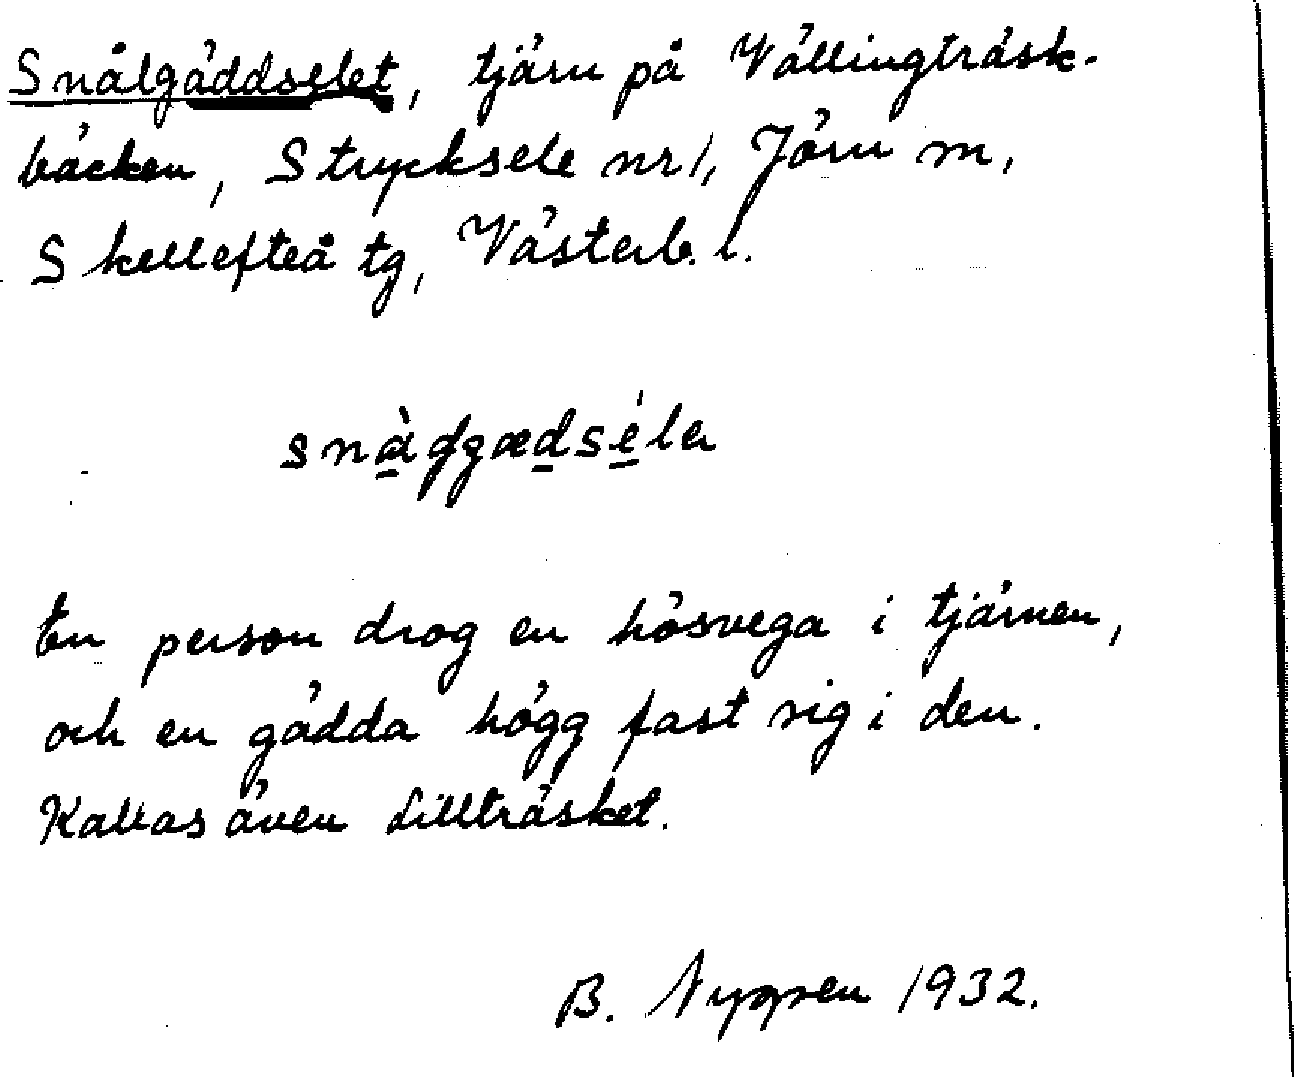 Snålgäddselet, tjärn på Vällingträsk-
bäcken, Strycksele nr 1, Jörn m,
Skellefteå tg, Västerb. l.
En person drog en hösvega i tjärnen,
och en gädda högg fast sig i den.
Kallas även Lillträsket.
B. Nygren 1932.